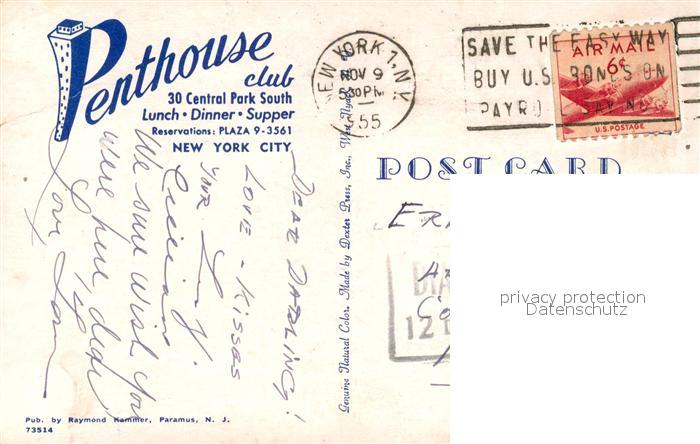 Penthouse
club
30 Central Park South
Lunch • Dinner • Supper
Reservations: PLAZA 9-3561
NEW YORK CITY
NEW YORK 1, N.Y.
NOV 9
530 PM
1955
SAVE THE EASY WAY
BUY U.S. BONDS ON
PAYROLL SAVINGS
AIR MAIL
6¢
U.S. POSTAGE
POST CARD
DEAR DARLING!
LOVE - KISSES
YOUR
We sure wish you
were here,
Love
Genuine Natural Color. Made by Dexter Press, Inc., West Nyack, N. Y.
12
privacy protection
Datenschutz
Pub. by Raymond Kammer, Paramus, N. J.
73514